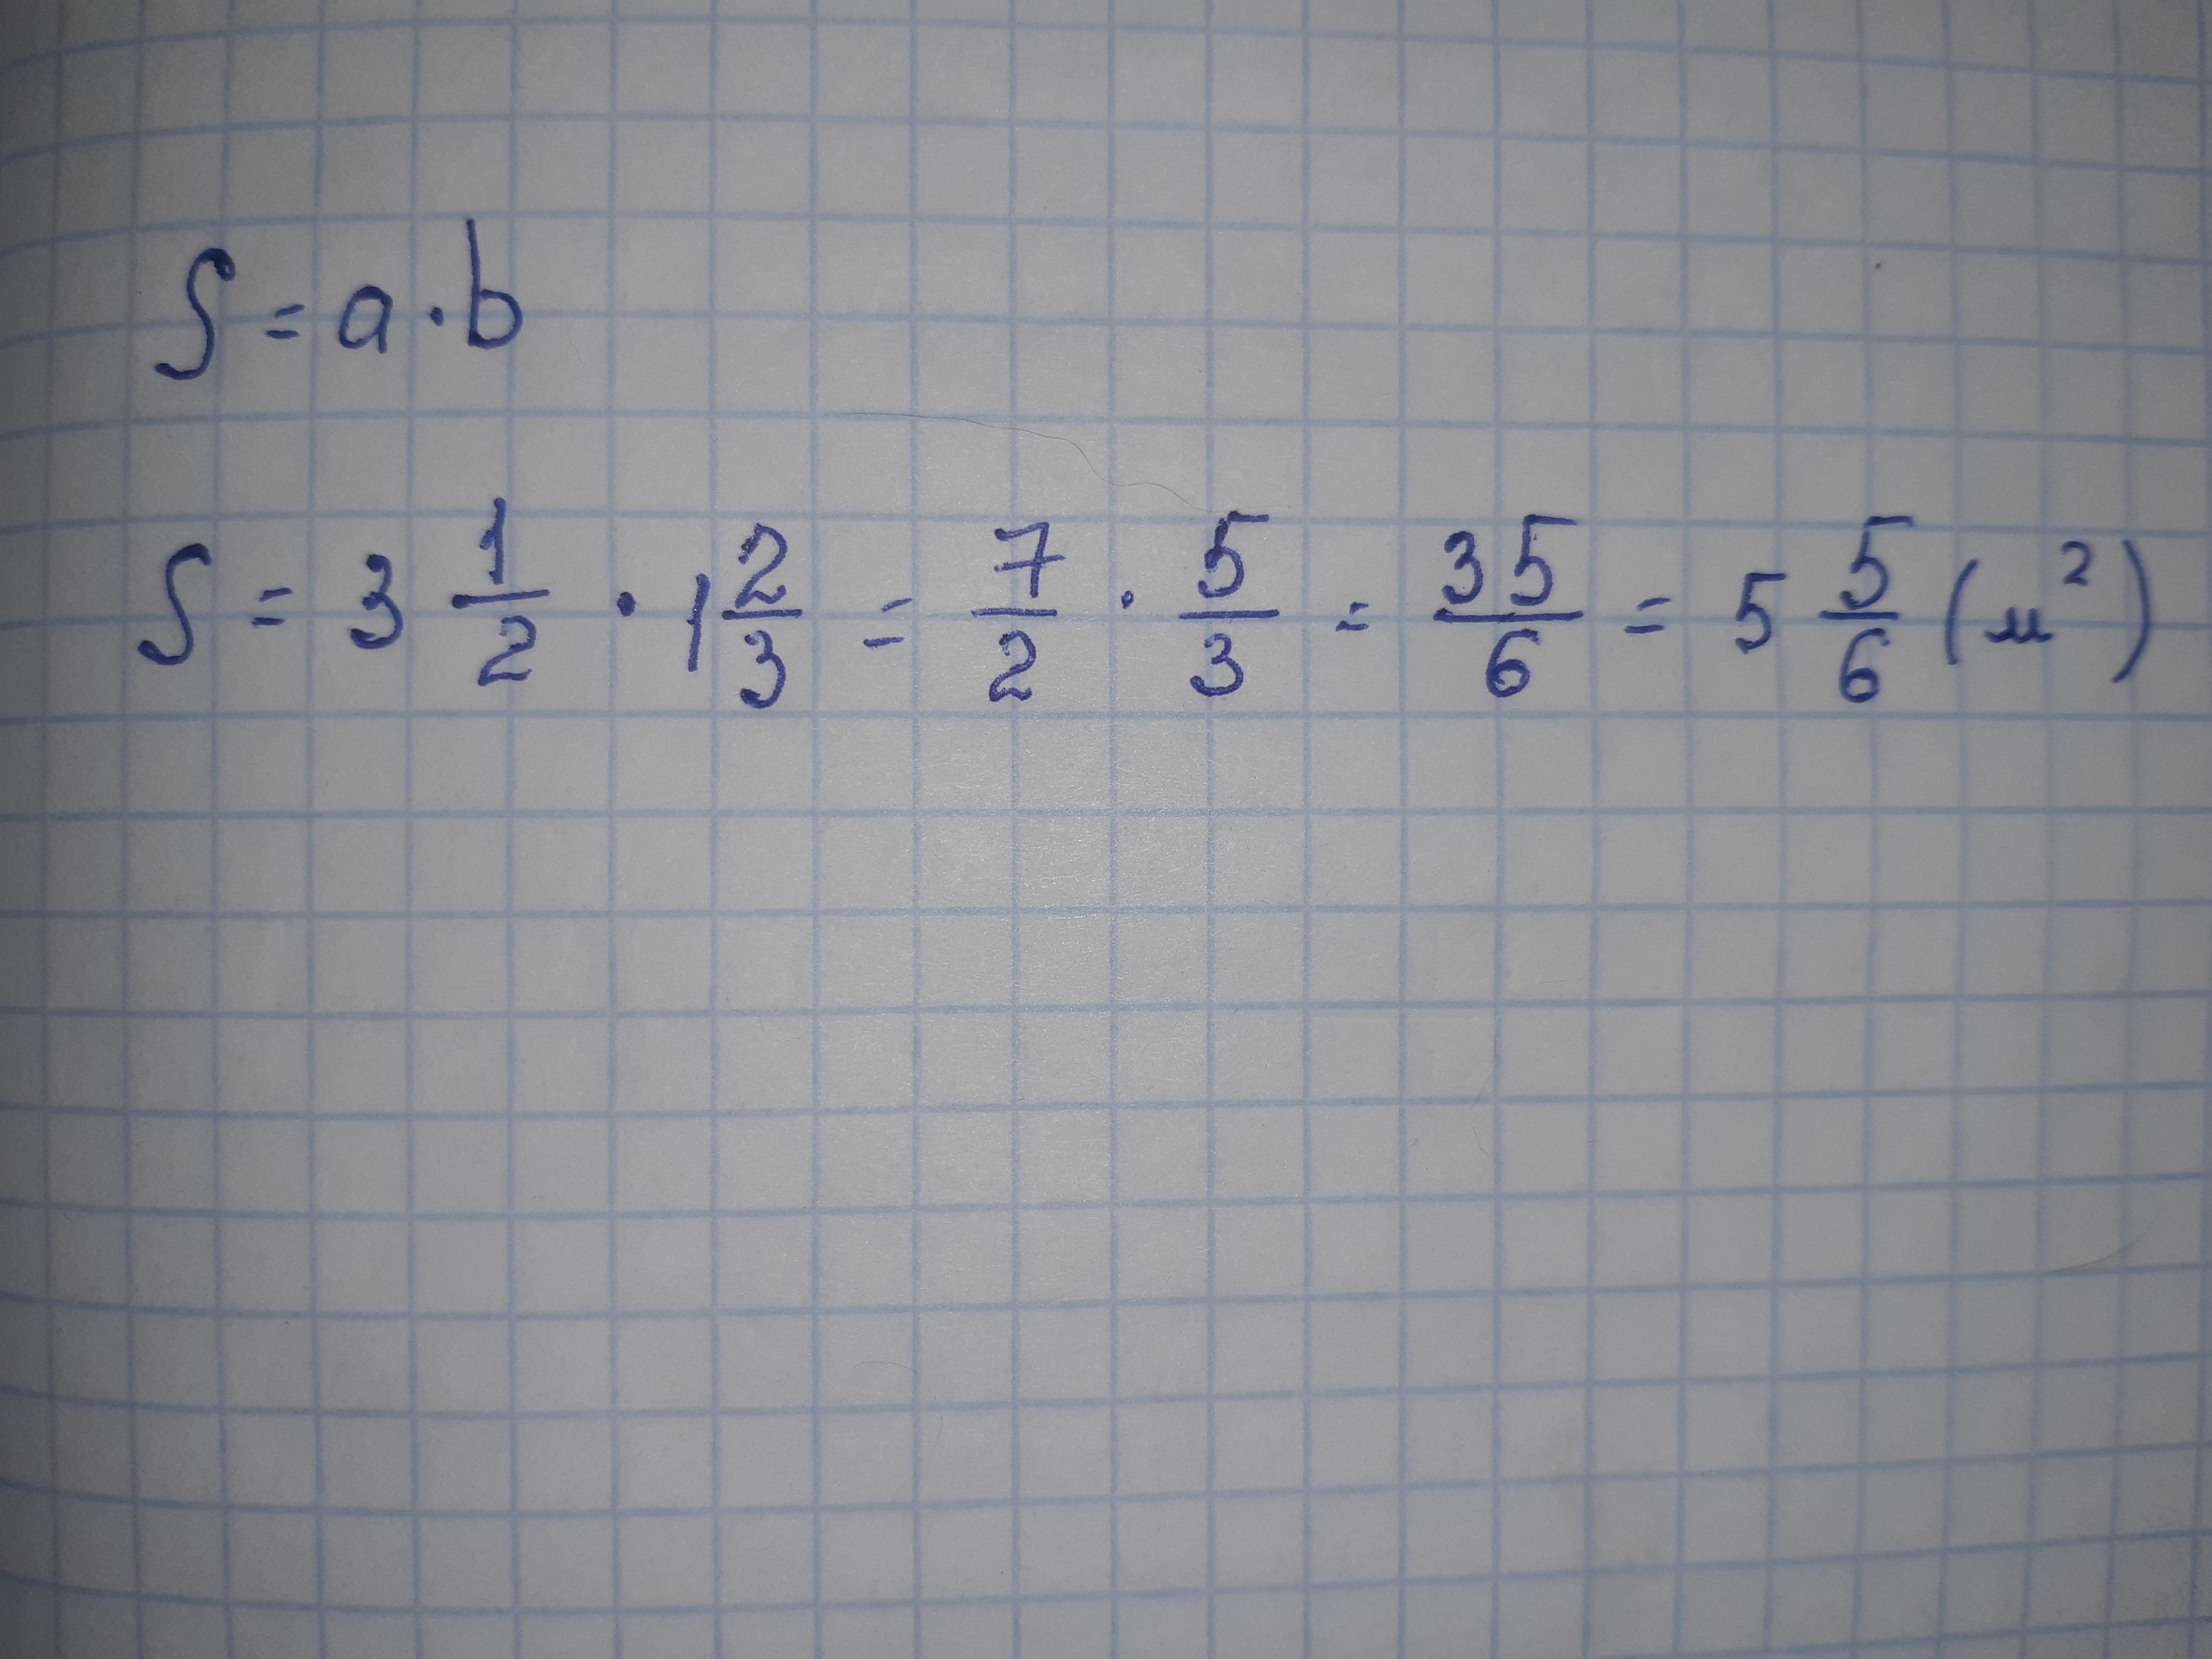 S = a · b
S = 3 1/2 · 1 2/3 = 7/2 · 5/3 = 35/6 = 5 5/6 (м²)